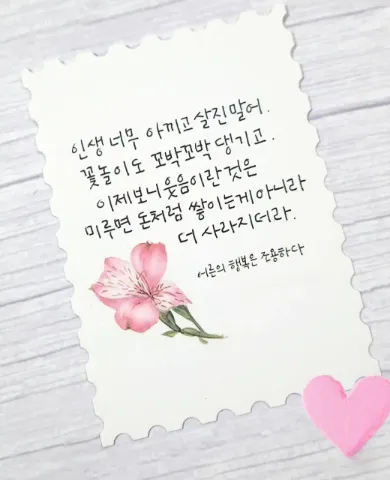 인생 너무 아끼고 살진말어.
꽃놀이도 꼬박꼬박 댕기고.
이제보니 웃음이란 것은
미루면 돈처럼 쌓이는게 아니라
더 사라지더라.
어른의 행복은 조용하다